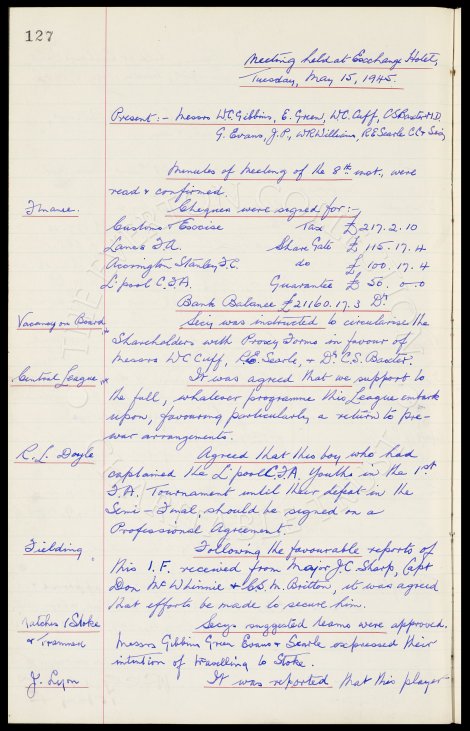 127
Meeting held at Exchange Hotel,
Tuesday, May 15, 1945.
Present:- Messrs W.C. Gibbins, E. Green, W.C. Cuff, C.S. Baxter M.D.
G. Evans, J.P., W.R. Williams, R.E. Searle C.C. & Secy
Minutes of Meeting of the 8th inst., were
read & confirmed.
Finance. Cheques were signed for:-
Customs & Excise Tax £217. 2. 10
Lancs F.A. Share Gate £115. 17. 4
Accrington Stanley F.C. do £100. 17. 4
L'pool C.F.A. Guarantee £50. 0. 0
Bank Balance £21160. 17. 3 Dr
Vacancy on Board Secy was instructed to circularise the
Shareholders with Proxy Forms in favour of
Messrs W.C. Cuff, R.E. Searle, & Dr C.S. Baxter.
Central League It was agreed that we support to
the full, whatever programme this League embark
upon, favouring particularly a return to pre-
war arrangements.
R. L. Doyle Agreed that this boy who had
captained the L'pool C.F.A. Youth in the 1st
F.A. Tournament until their defeat in the
Semi-Final, should be signed on a
Professional Agreement.
Fielding. Following the favourable reports of
this I.F. received from Major J.C. Sharp, Capt
Don McWhinnie & C.S. M. Britton, it was agreed
that efforts be made to secure him.
Matches / Stoke Secys suggested teams were approved.
& Tranmere Messrs Gibbins Green Evans & Searle expressed their
intention of travelling to Stoke.
J. Lyon It was reported that this player